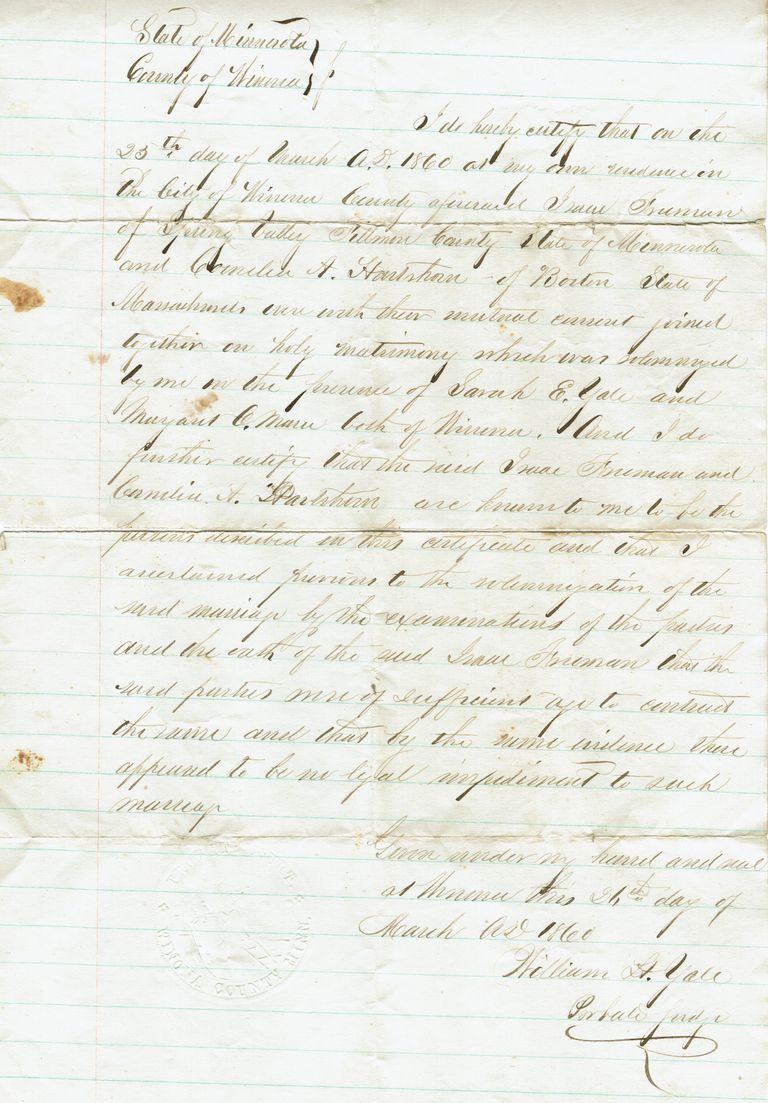 State of Minnesota
County of Winona
I do hereby certify that on the
25th day of March A.D. 1860 at my own residence in
the City of Winona County aforesaid Isaac Freeman
of Spring Valley Fillmore County State of Minnesota
and Camelia A. Hartshorn of Boston State of
Massachusetts were with their mutual consent joined
together in holy matrimony which was solemnized
by me in the presence of Sarah E. Yale and
Margaret C. both of Winona. And I do
further certify that the said Isaac Freeman and
Camelia A. Hartshorn are known to me to be the
persons described in this certificate and that I
ascertained previous to the solemnization of the
said marriage by the examinations of the parties
and the oath of the said Isaac Freeman that the
said parties were of sufficient age to contract
the same and that by the same evidence there
appeared to be no legal impediment to such
marriage
Given under my hand and seal
at Winona this day of
March AD 1860
William H. Yale
Probate Judge
WINONA COUNTY MINN.